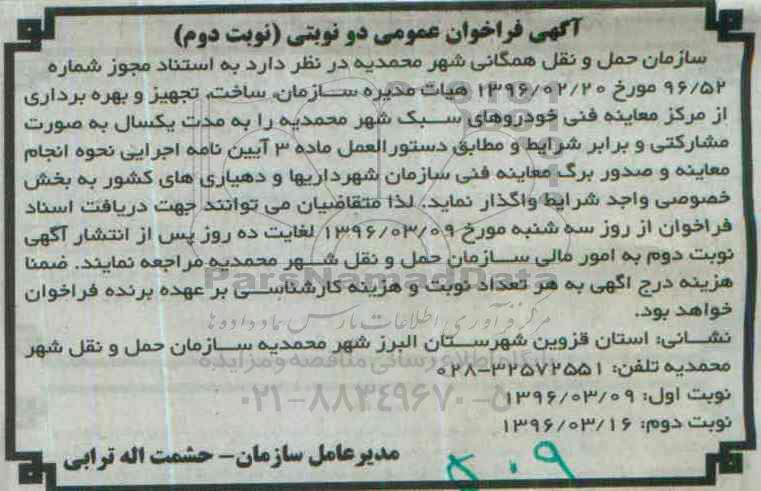 آگهی فراخوان عمومی دو نوبتی (نوبت دوم)
سازمان حمل و نقل همگانی شهر محمدیه در نظر دارد به استناد مجوز شماره
۹۶/۵۲ مورخ ۱۳۹۶/۰۲/۲۰ هیات مدیره سازمان، ساخت، تجهیز و بهره برداری
از مرکز معاینه فنی خودروهای سبک شهر محمدیه را به مدت یکسال به صورت
مشارکتی و برابر شرایط و مطابق دستورالعمل ماده ۳ آیین نامه اجرایی نحوه انجام
معاینه و صدور برگ معاینه فنی سازمان شهرداریها و دهیاری های کشور به بخش
خصوصی واجد شرایط واگذار نماید. لذا متقاضیان می توانند جهت دریافت اسناد
فراخوان از روز سه شنبه مورخ ۱۳۹۶/۰۳/۰۹ لغایت ده روز پس از انتشار آگهی
نوبت دوم به امور مالی سازمان حمل و نقل شهر محمدیه مراجعه نمایند. ضمنا
ParsNamadData
هزینه درج اگهی به هر تعداد نوبت و هزینه کارشناسی بر عهده برنده فراخوان
خواهد بود.
مرکز فرآوری اطلاعات پارس نماد داده ها
نشانی: استان قزوین شهرستان البرز شهر محمدیه سازمان حمل و نقل شهر
پایگاه اطلاع رسانی مناقصه و مزایده
محمدیه تلفن: ۳۲۵۷۲۵۵۱-۰۲۸
نوبت اول: ۱۳۹۶/۰۳/۰۹
۰۲۱-۸۸۳۴۹۶۷۰-۵
نوبت دوم: ۱۳۹۶/۰۳/۱۶
مدیرعامل سازمان- حشمت اله ترابی
۵۰۹